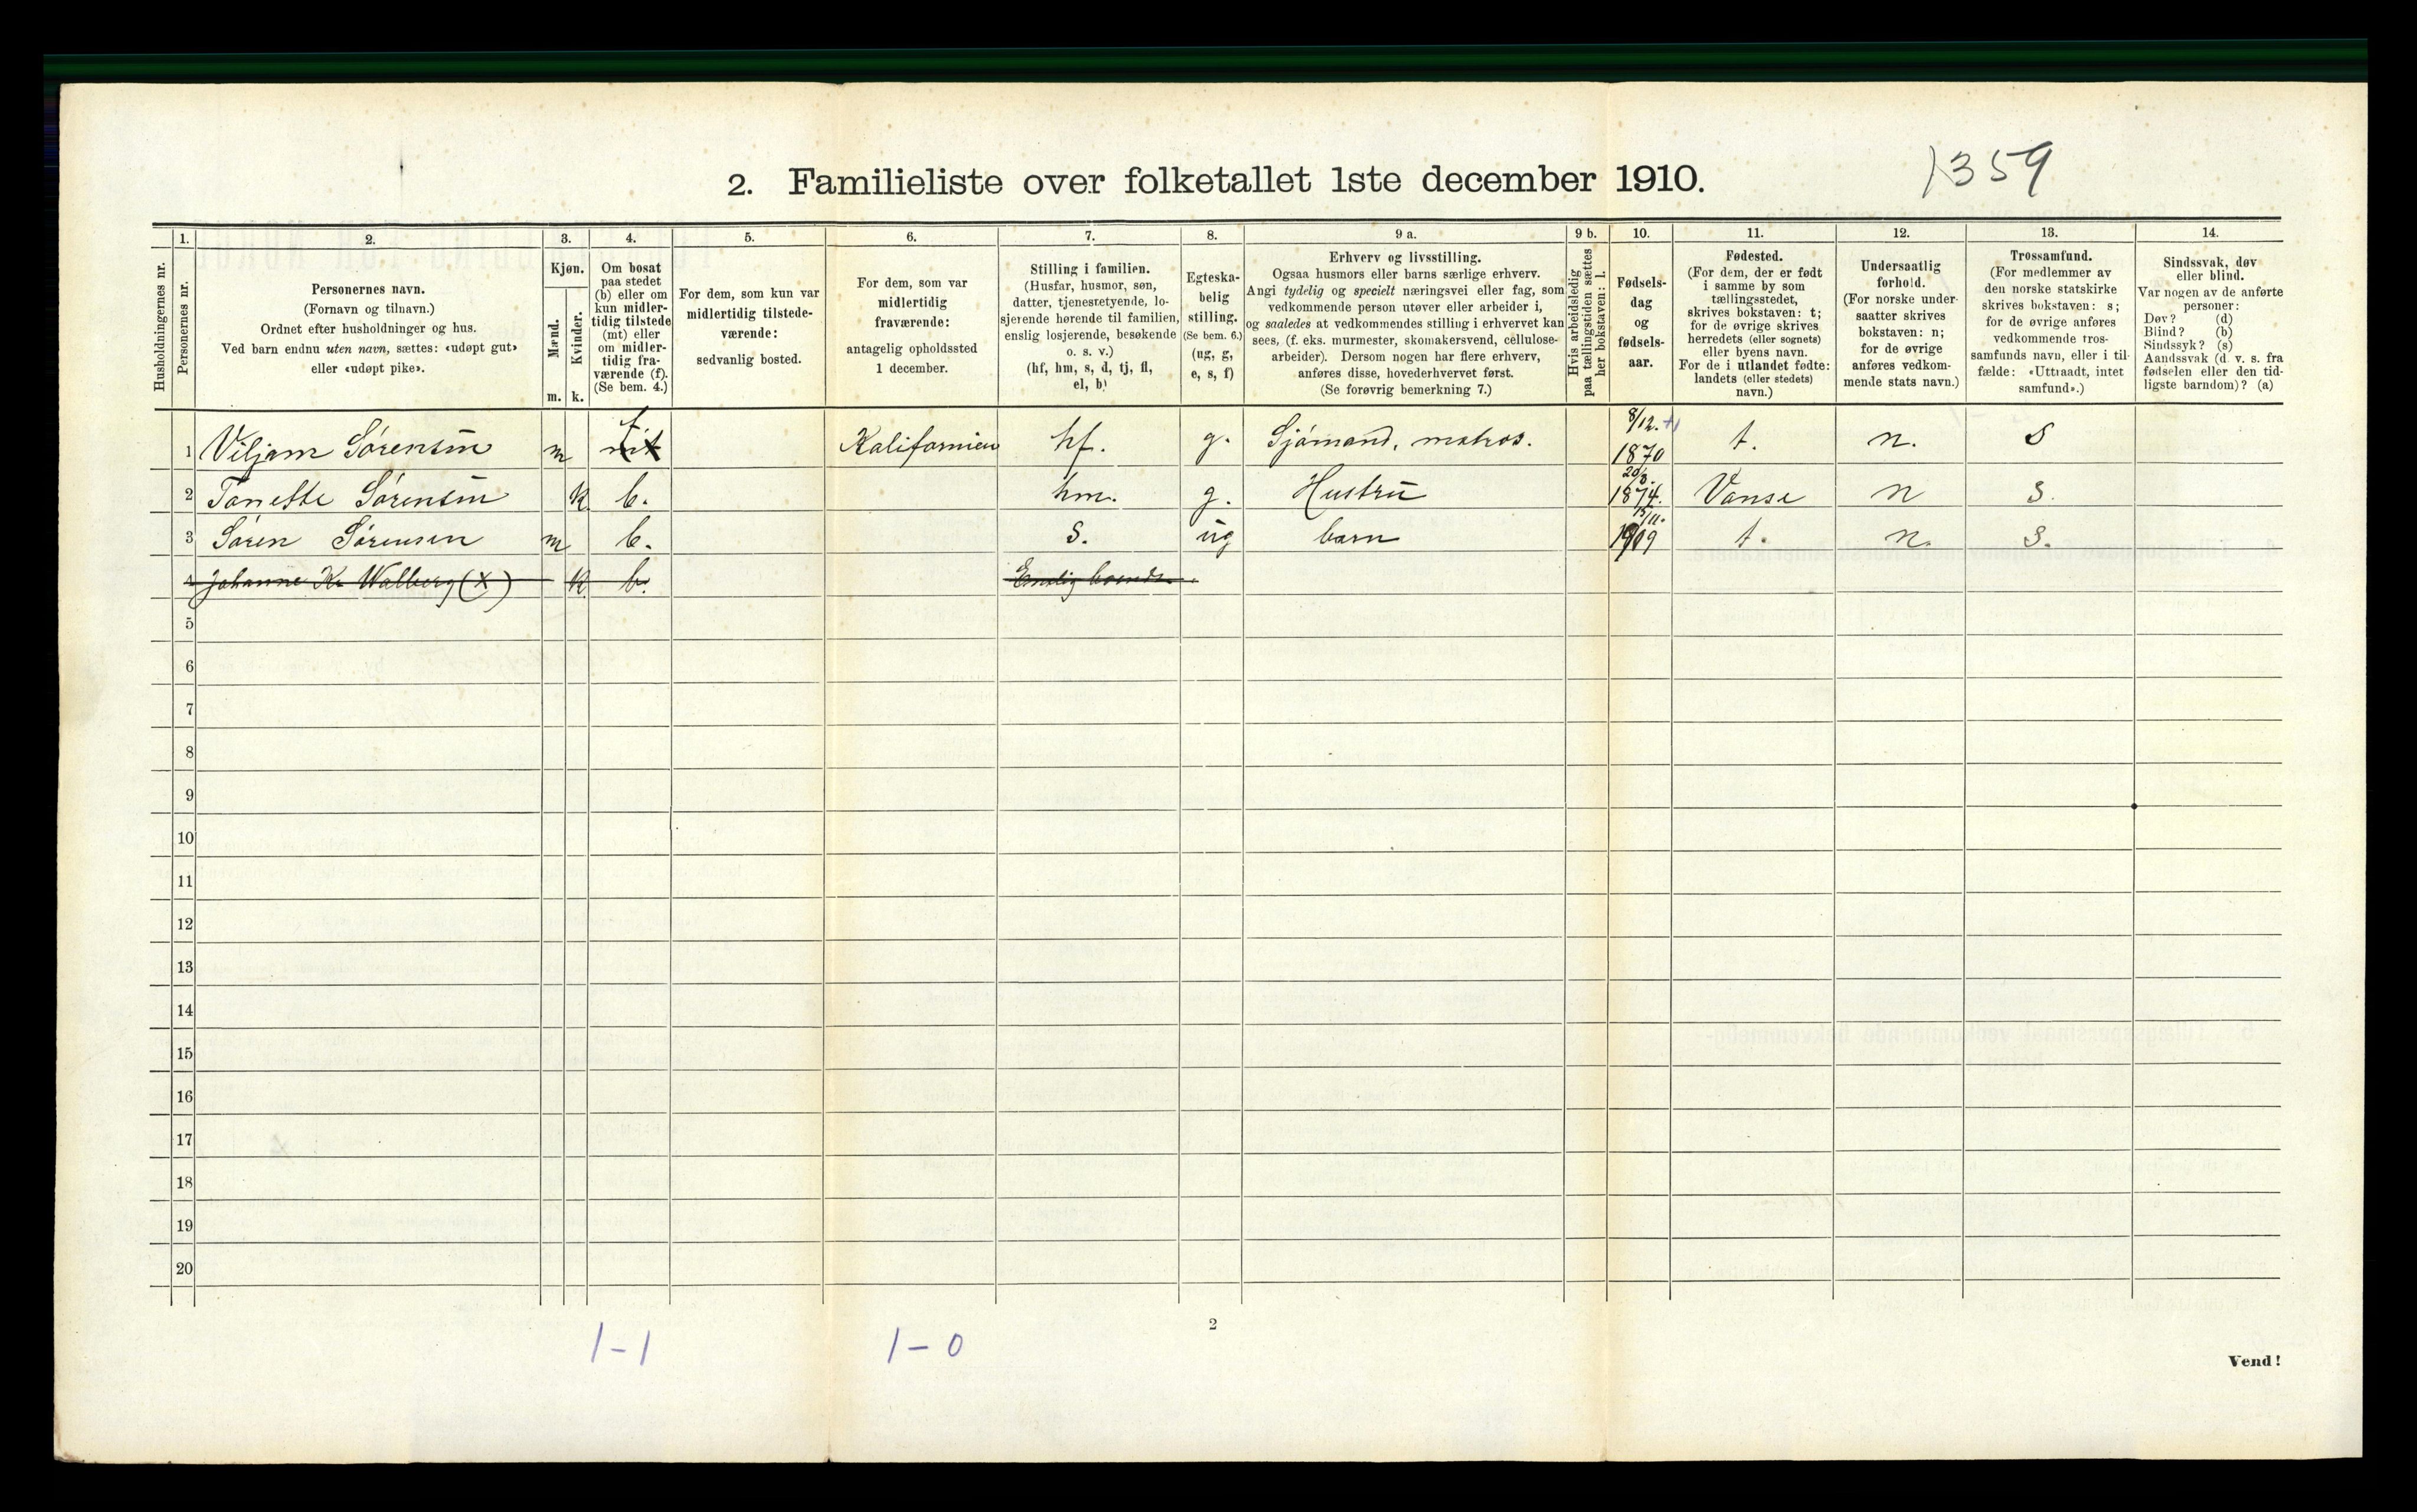 1359
2. Familieliste over folketallet 1ste december 1910.
Husholdningernes nr.
1.
Personernes nr.
2.
Personernes navn.
(Fornavn og tilnavn.)
Ordnet efter husholdninger og hus.
Ved barn endnu uten navn, sættes: «udøpt gut»
eller «udøpt pike».
3.
Kjøn.
Mænd.
Kvinder.
m. k.
4.
Om bosat
paa stedet
(b) eller om
kun midler-
tidig tilstede
(mt) eller
om midler-
tidig fra-
værende (f).
(Se bem. 4.)
5.
For dem, som kun var
midlertidig tilstede-
værende:
sedvanlig bosted.
6.
For dem, som var
midlertidig
fraværende:
antagelig opholdssted
1 december.
7.
Stilling i familien.
(Husfar, husmor, søn,
datter, tjenestetyende, lo-
sjerende hørende til familien,
enslig losjerende, besøkende
o. s. v.)
(hf, hm, s, d, tj, fl,
el, b)
8.
Egteska-
belig
stilling.
(Se bem. 6.)
(ug, g,
e, s, f)
9 a.
Erhverv og livsstilling.
Ogsaa husmors eller barns særlige erhverv.
Angi tydelig og specielt næringsvei eller fag, som
vedkommende person utøver eller arbeider i,
og saaledes at vedkommendes stilling i erhvervet kan
sees, (f. eks. murmester, skomakersvend, cellulose-
arbeider). Dersom nogen har flere erhverv,
anføres disse, hovederhvervet først.
(Se forøvrig bemerkning 7.)
9 b.
Hvis arbeidsledig
paa tællingstiden sættes
her bokstaven: l.
10.
Fødsels-
dag
og
fødsels-
aar.
11.
Fødested.
(For dem, der er født
i samme by som
tællingsstedet,
skrives bokstaven: t;
for de øvrige skrives
herredets (eller sognets)
eller byens navn.
For de i utlandet fødte:
landets (eller stedets)
navn.)
12.
Undersaatlig
forhold.
(For norske under-
saatter skrives
bokstaven: n;
for de øvrige
anføres vedkom-
mende stats navn.)
13.
Trossamfund.
(For medlemmer av
den norske statskirke
skrives bokstaven: s;
for de øvrige anføres
vedkommende tros-
samfunds navn, eller i til-
fælde: «Uttraadt, intet
samfund».)
14.
Sindssvak, døv
eller blind.
Var nogen av de anførte
personer:
Døv? (d)
Blind? (b)
Sindssyk? (s)
Aandssvak (d. v. s. fra
fødselen eller den tid-
ligste barndom)? (a)
1 Viljam Sørensen m mt f. Kalifornien hf. g. Sjømand, matros. 8/12. 1870 t. n. S
2 Tanette Sørensen k b. hm. g. Hustru 20/3. 1874. Vanse n s.
3 Søren Sørensen m b. s. ug barn 15/11. 1909 t. n. s.
4 Johanne Kr Walberg (X) k b. Enslig boende.
5
6
7
8
9
10
11
12
13
14
15
16
17
18
19
20
2
1-1 1-0
Vend!